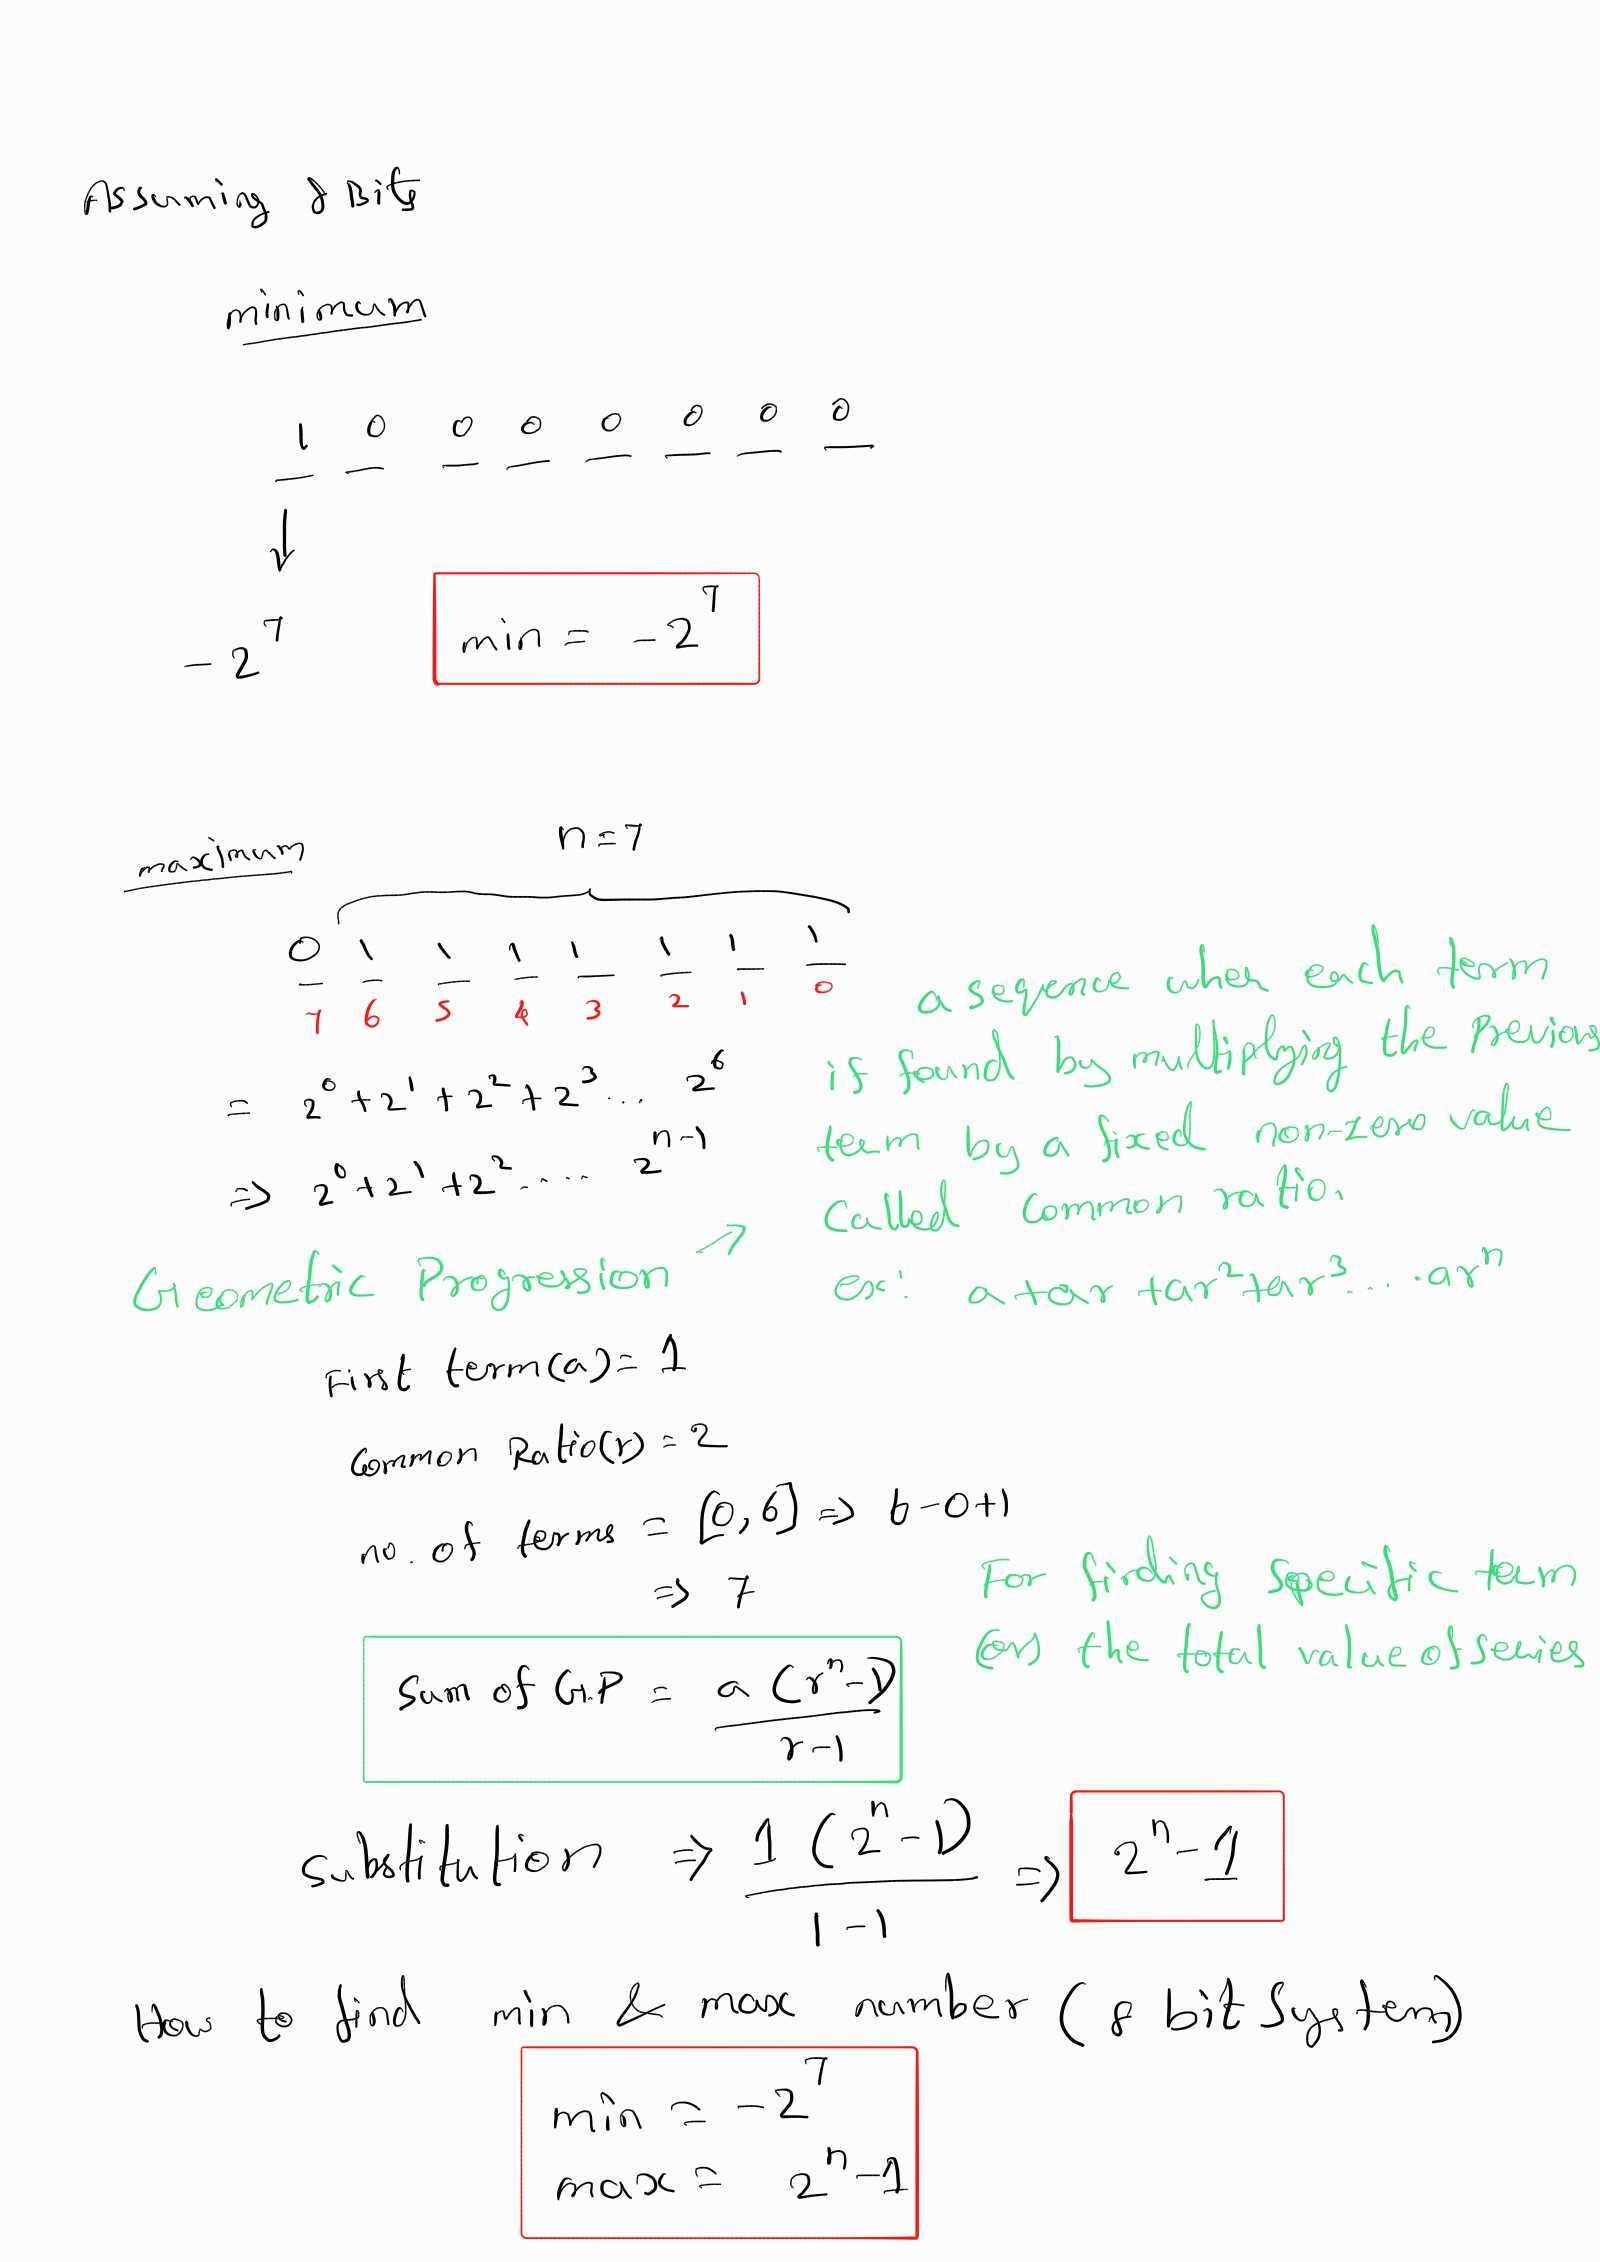 Assuming 8 Bits
minimum
1 0 0 0 0 0 0 0
-2^7
min = -2^7
maximum
n=7
0 1 1 1 1 1 1 1
7 6 5 4 3 2 1 0
= 2^0+2^1+2^2+2^3... 2^6
=> 2^0+2^1+2^2..... 2^n-1
Geometric Progression
a seqence when each term
if found by multiplying the previous
term by a fixed non-zero value
Called Common ratio.
ex: a+ar+ar^2+ar^3....ar^n
First term(a)= 1
Common Ratio(r)=2
no. of terms = [0,6] => 6-0+1
=> 7
For finding specific term
(or) the total value of series
Sum of G.P = a(r^n-1)
r-1
Substitution => 1(2^n-1) => 2^n-1
1-1
How to find min & max number (8 bit System)
min = -2^7
max = 2^n-1